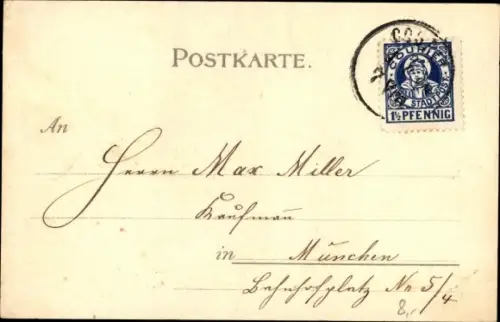 POSTKARTE.
COURIER
STADTPOST
1½ PFENNIG
An
Herrn Max Miller
Kaufmann
in München
Bahnhofplatz No 5/4
8,-